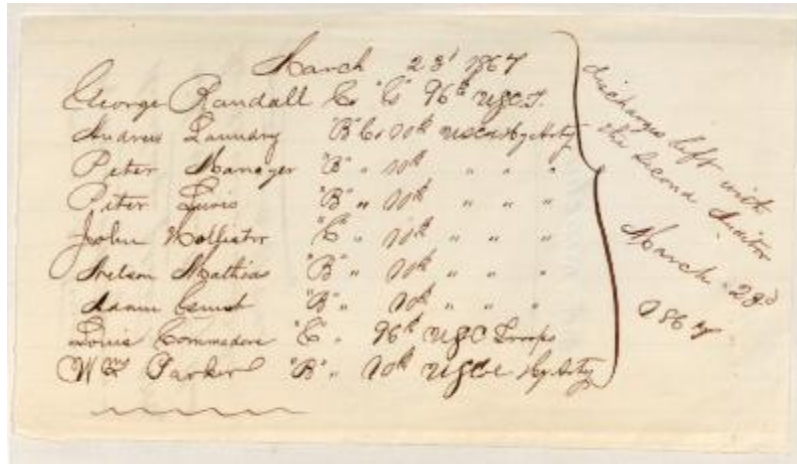 March 23d 1867
George Randall Co "C" 96th USC.T.
Andrew Laundry "B" Co 10th USC Hy Arty
Peter Manager "B" " 10th " " "
Peter Lewis "B" " 10th " " "
John Hollister "C" " 10th " " "
Nelson Mathias "B" " 10th " " "
"B" " 10th " " "
Louis Commedore "C" " 96th USC Troops
Wm Parker "B" " 10th USC Hy Arty
discharges left with
the Second Auditor
March 23d
1867